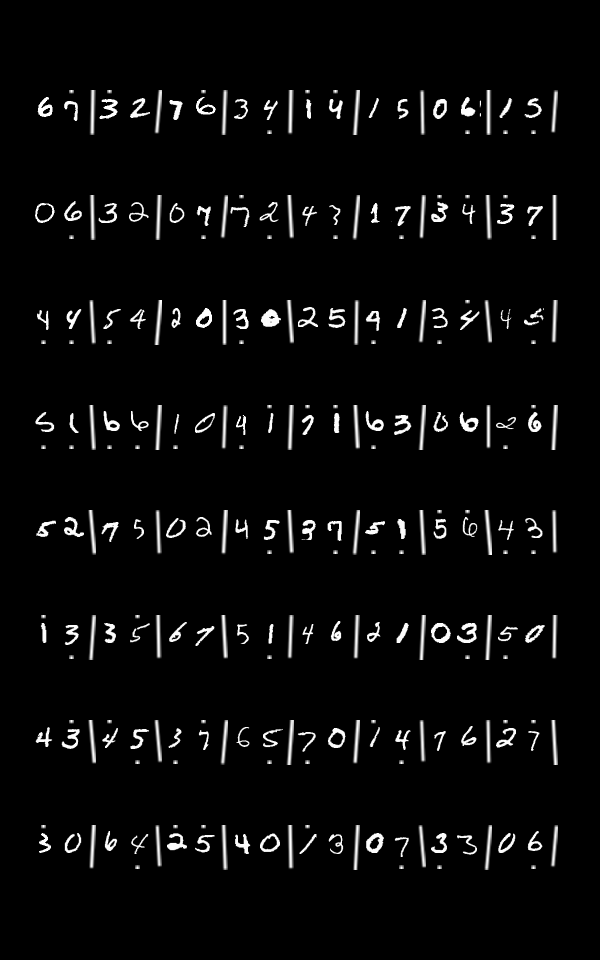 6 7 | 3 2 | 7 6 | 3 4 | 1 4 | 1 5 | 0 6 | 1 5 |
0 6 | 3 2 | 0 7 | 7 2 | 4 3 | 1 7 | 3 4 | 3 7 |
4 4 | 5 4 | 2 0 | 3 0 | 2 5 | 9 1 | 3 4 | 4 5 |
5 1 | 6 6 | 1 0 | 4 1 | 7 1 | 6 3 | 0 6 | 2 6 |
5 2 | 7 5 | 0 2 | 4 5 | 3 7 | 5 1 | 5 6 | 4 3 |
1 3 | 3 5 | 6 7 | 5 1 | 4 6 | 2 1 | 0 3 | 5 0 |
4 3 | 4 5 | 3 7 | 6 5 | 7 0 | 1 4 | 7 6 | 2 7 |
3 0 | 6 4 | 2 5 | 4 0 | 1 3 | 0 7 | 3 3 | 0 6 |